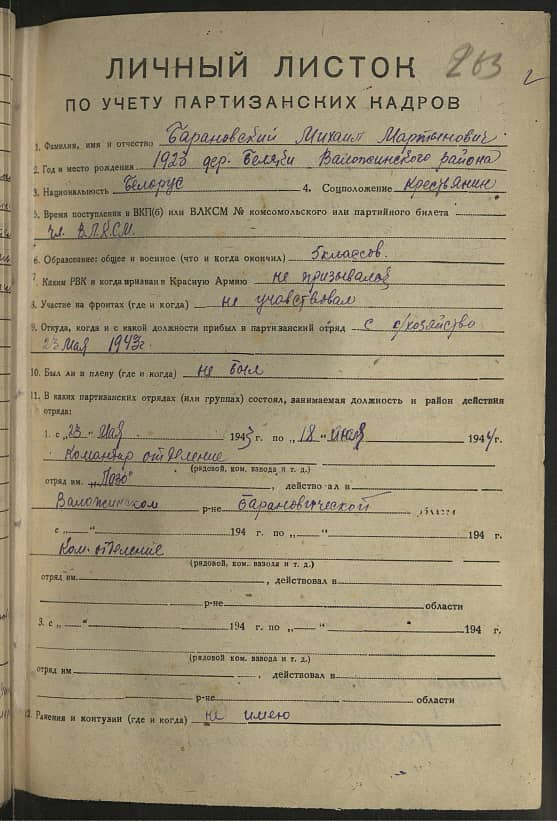 263
2
ЛИЧНЫЙ ЛИСТОК
ПО УЧЕТУ ПАРТИЗАНСКИХ КАДРОВ
1. Фамилия, имя и отчество Барановский Михаил Мартынович
2. Год и место рождения 1923 дер. Воложинского района
3. Национальность Белорус 4. Соцположение Крестьянин
5. Время поступления в ВКП(б) или ВЛКСМ № комсомольского или партийного билета
чл. ВЛКСМ
6. Образование: общее и военное (что и когда окончил) 5 классов.
7. Каким РВК и когда призван в Красную Армию не призывался
8. Участие на фронтах (где и когда) не учавствовал
9. Откуда, когда и с какой должности прибыл в партизанский отряд с с/хозяйства
23 мая 1943 г.
10. Был ли в плену (где и когда) не был
11. В каких партизанских отрядах (или группах) состоял, занимаемая должность и район действия
отряда:
1. с „23" мая 1943 г. по „18" 1944 г.
Командир отделение
(рядовой, ком. взвода и т. д.)
отряд им. „Лазо", действовал в
Валожинском р-не Барановической области
с „ " 194 г. по „ " 194 г.
Ком. отделение
(рядовой, ком. взвода и т. д.)
отряд им. , действовал в
р-не области
3. с „ " 194 г. по „ " 194 г.
(рядовой ком. взвода и т. д.)
отряд им , действовал в
р-не области
12. Ранения и контузии (где и когда) не имею